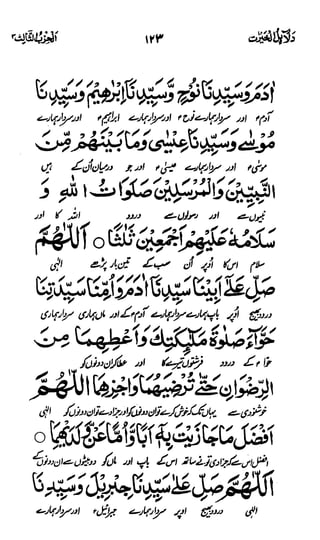 دلائل الخیرات ١٢٣ الحزب الثالث
اٰدَمَ وَسَيِّدِنَا نُوْحٍ وَّسَيِّدِنَآ اِبْرٰهِيْمَ وَسَيِّدِنَا
آدمؑ اور سردار ہمارے نوحؑ اور سردار ہمارے ابراہیمؑ اور سردار ہمارے
مُوْسٰى وَسَيِّدِنَا عِيْسٰى وَمَا بَيْنَهُمْ مِّنَ
موسٰیؑ اور سردار ہمارے عیسٰیؑ اور جو درمیان اُن کے ہیں
النَّبِيِّيْنَ وَالْمُرْسَلِيْنَ صَلَوَاتُ اللهِ وَ
نبیوں سے اور رسولوں سے درود اللہ کا اور
سَلَامُهٗ عَلَيْهِمْ اَجْمَعِيْنَ ثَلٰثًا ○ اَللّٰهُمَّ
سلام اس کا اُوپر اُن سب کے تین بار پڑھے الٰہی
صَلِّ عَلٰٓى اَبِيْنَا سَيِّدِنَآ اٰدَمَ وَاُمِّنَا سَيِّدَتِنَا
درود بھیج اُوپر باپ ہمارے سردار ہمارے آدمؑ کے اور ماں ہماری سردار ہماری
حَوَّآءَ صَلٰوةَ مَلٰٓئِكَتِكَ وَاَعْطِهِمَا مِنَ
حواؑ کے درود فرشتوں تیرے کا اور عطا کر ان دونوں کو
الرِّضْوَانِ حَتّٰى تُرْضِيَهُمَا وَاجْزِهِمَا اَللّٰهُمَّ
خوشنودی سے یہاں تک کہ خوش کرے تو ان دونوں کو اور جزا دے تو ان دونوں کو الٰہی
اَفْضَلَ مَا جَازَيْتَ بِهٖٓ اَبًا وَّاُمًّا عَنْ وَّلَدَيْهِمَا ○
افضل اس سے کہ جزا دی تو نے ساتھ اس کے باپ اور ماں کو دو بیٹوں سے ان دونوں کے
اَللّٰهُمَّ صَلِّ عَلٰى سَيِّدِنَا جِبْرِيْلَ وَسَيِّدِنَا
الٰہی درود بھیج اوپر سردار ہمارے جبرائیلؑ اور سردار ہمارے